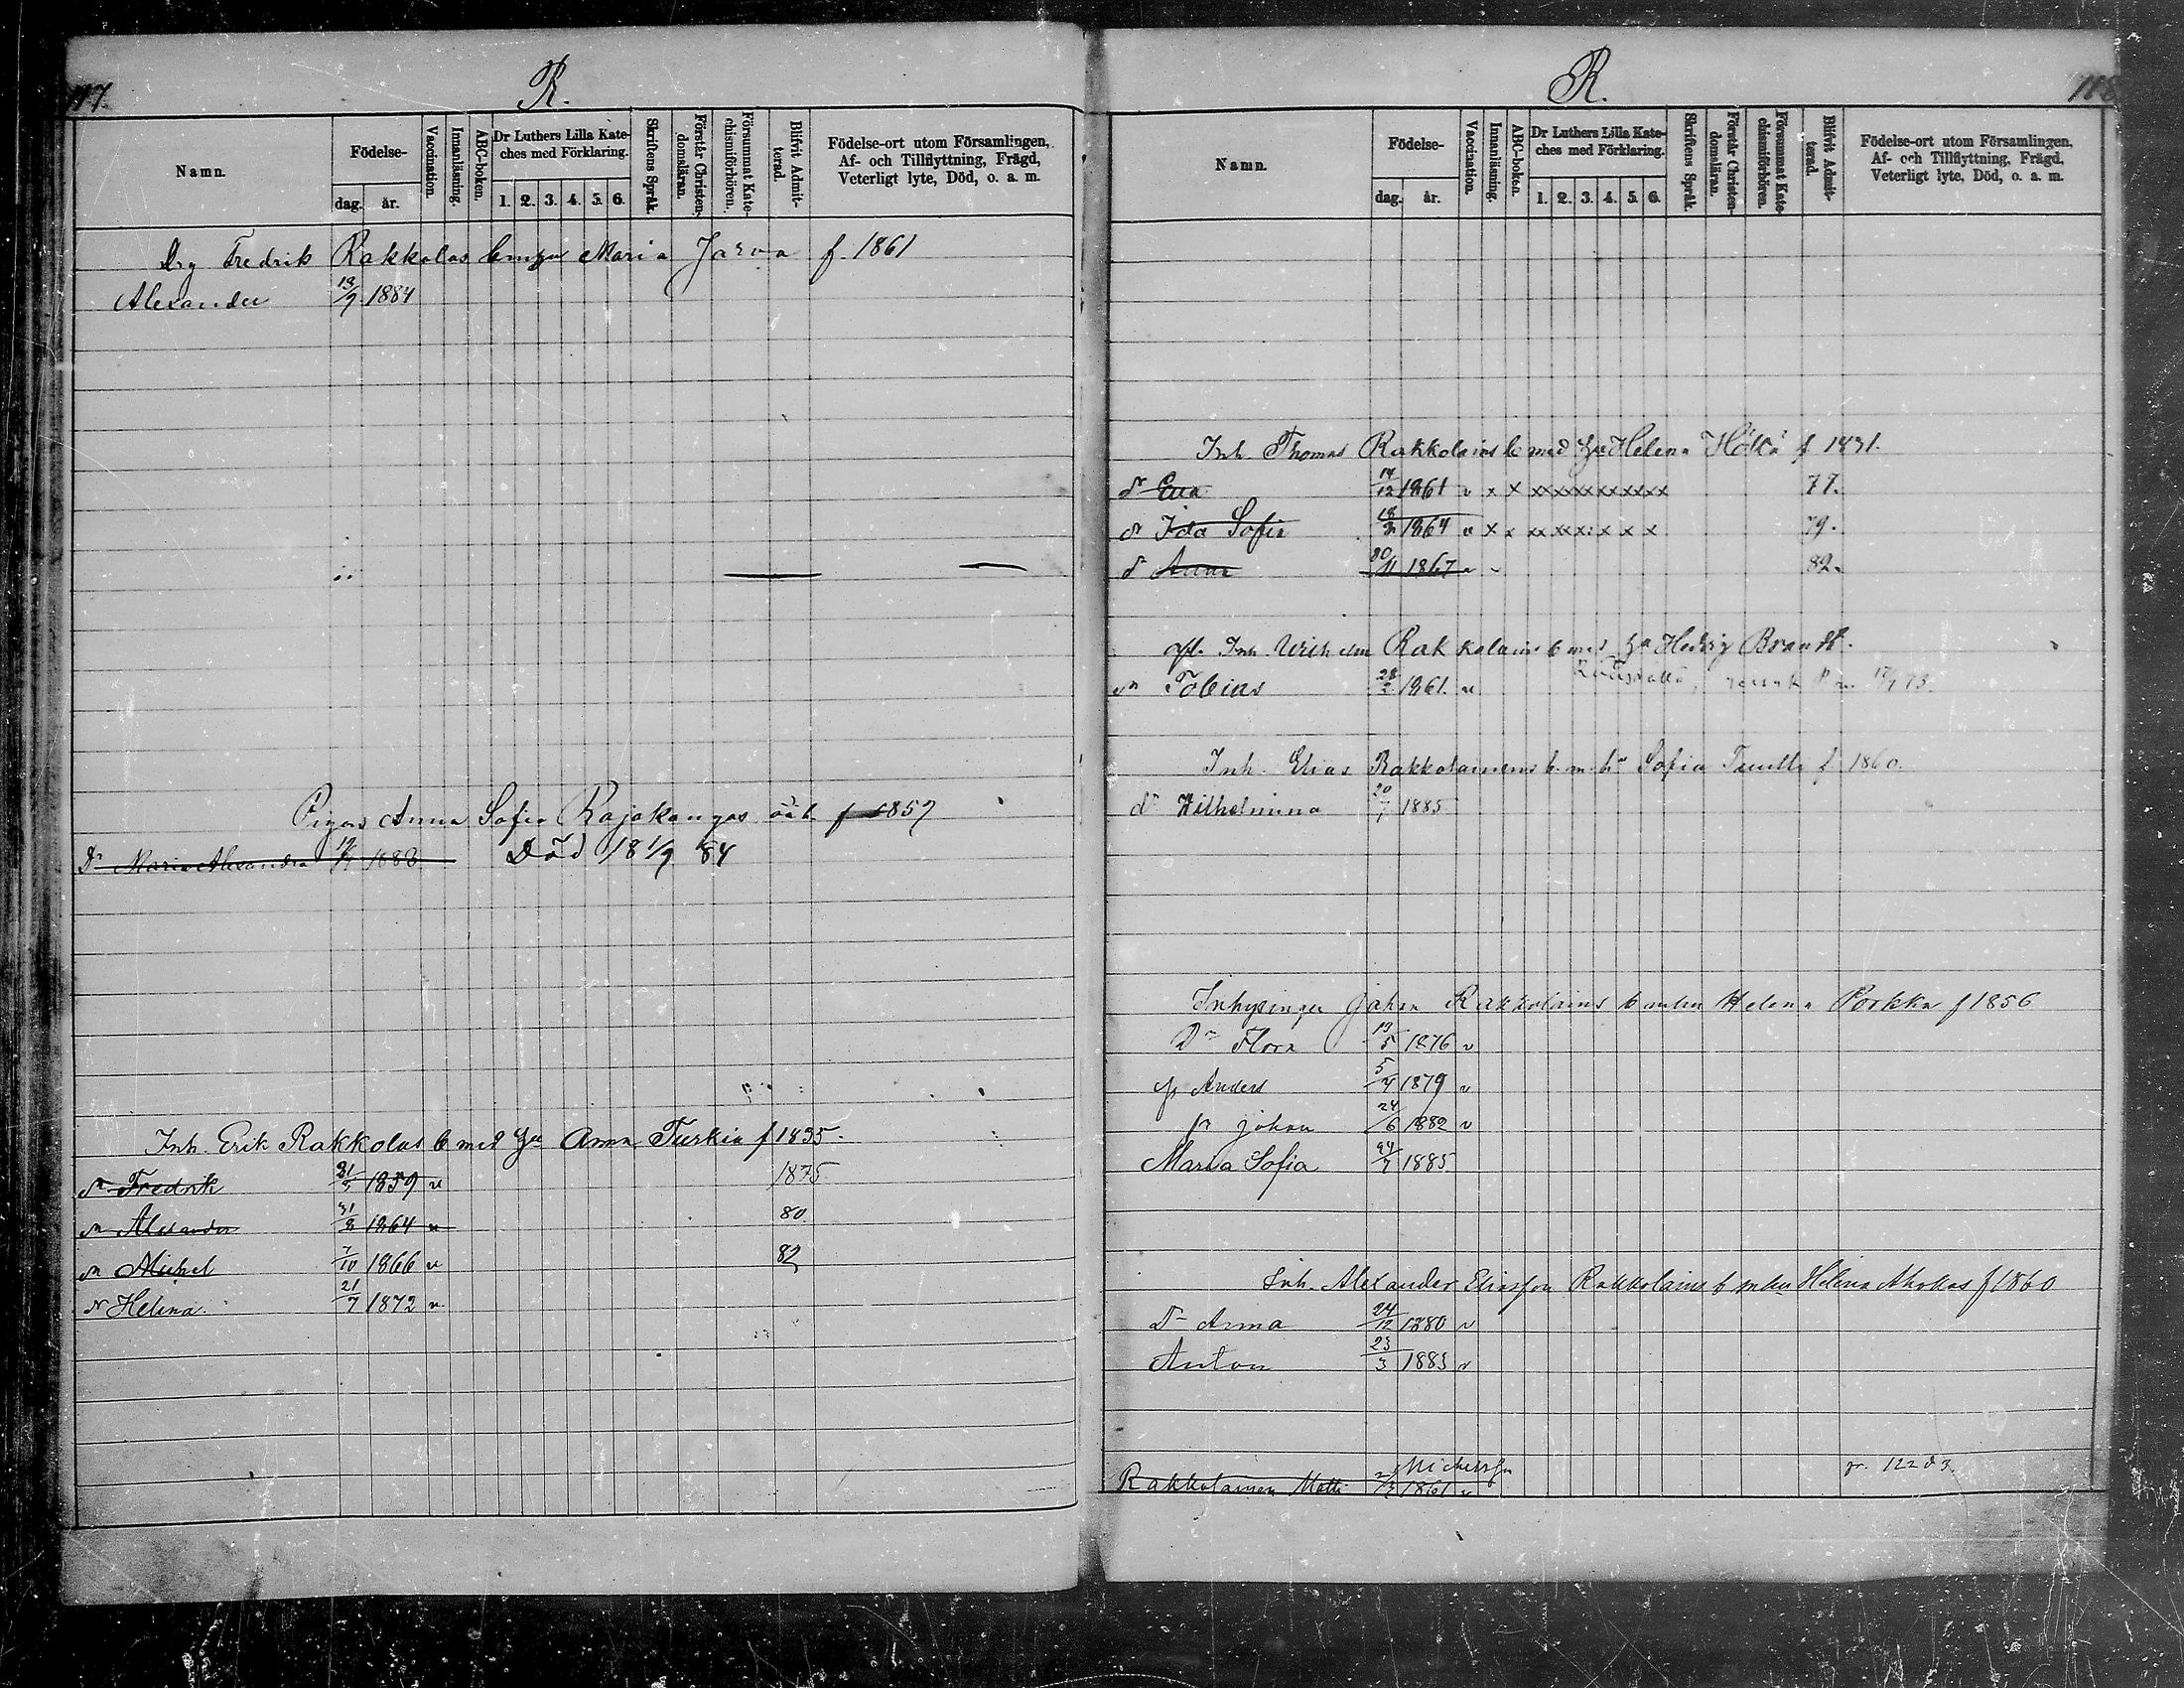 117.
R.
Namn.
Födelse-
dag.
år.
Vaccination.
Innanläsning.
ABC-boken.
Dr Luthers Lilla Kate-
ches med Förklaring.
1. 2. 3. 4. 5. 6.
Skriftens Språk.
Förstår Christen-
domsläran.
Försummat Kate-
chismiförhören.
Blifvit Admit-
terad.
Födelse-ort utom Församlingen,
Af- och Tillflyttning, Frägd,
Veterligt lyte, Död, o. a. m.
Drg Fredrik Rakkolas Maria Jarva f. 1861
Alexander 13/9 1884
Pigans Anna Sofia Rajakangas f 1857
Dr Maria Alexandra 1883 Död 18 1/9 84
Inh. Erik Rakkolas b med Anna Turkia f 1835.
Fredrik 1859 v 1875
Alexander 1864 v 80.
Michel 7/10 1866 v 82
Helena 21/7 1872 v
R.
118
Namn.
Födelse-
dag.
år.
Vaccination.
Innanläsning.
ABC-boken.
Dr Luthers Lilla Kate-
ches med Förklaring.
1. 2. 3. 4. 5. 6.
Skriftens Språk.
Förstår Christen-
domsläran.
Försummat Kate-
chismiförhören.
Blifvit Admit-
terad.
Födelse-ort utom Församlingen,
Af- och Tillflyttning, Frägd,
Veterligt lyte, Död, o. a. m.
Inh. Thomas Rakkolains b med Helena f 1831.
dr Eva 14/12 1861 v x x xxxxxxxxxxx 77.
dr Ida Sofia 1864 v x x 79.
dr Anna 1867 82.
Inh. Wilhelm Rakkolains b med Hedvig Brandt.
Tobias 28/2 1861. v
Inh. Elias Rakkolainens b. m. h. Sofia f 1860.
dr Wilhelmina 20/7 1885
Inhysingen Johan Rakkolains b m hu Helena Porkka f 1856
Dr Flora 13/5 1876 v
Anders 5/4 1879 v
Johan 24/6 1882 v
Maria Sofia 24/7 1885
Inh. Alexander Eliasson Rakkolains b m hu Helena Ahokas f 1860
Dr Anna 24/12 1880 v
Anton 23/3 1883 v
Michelsson
Rakkolainen Matti 1861 v